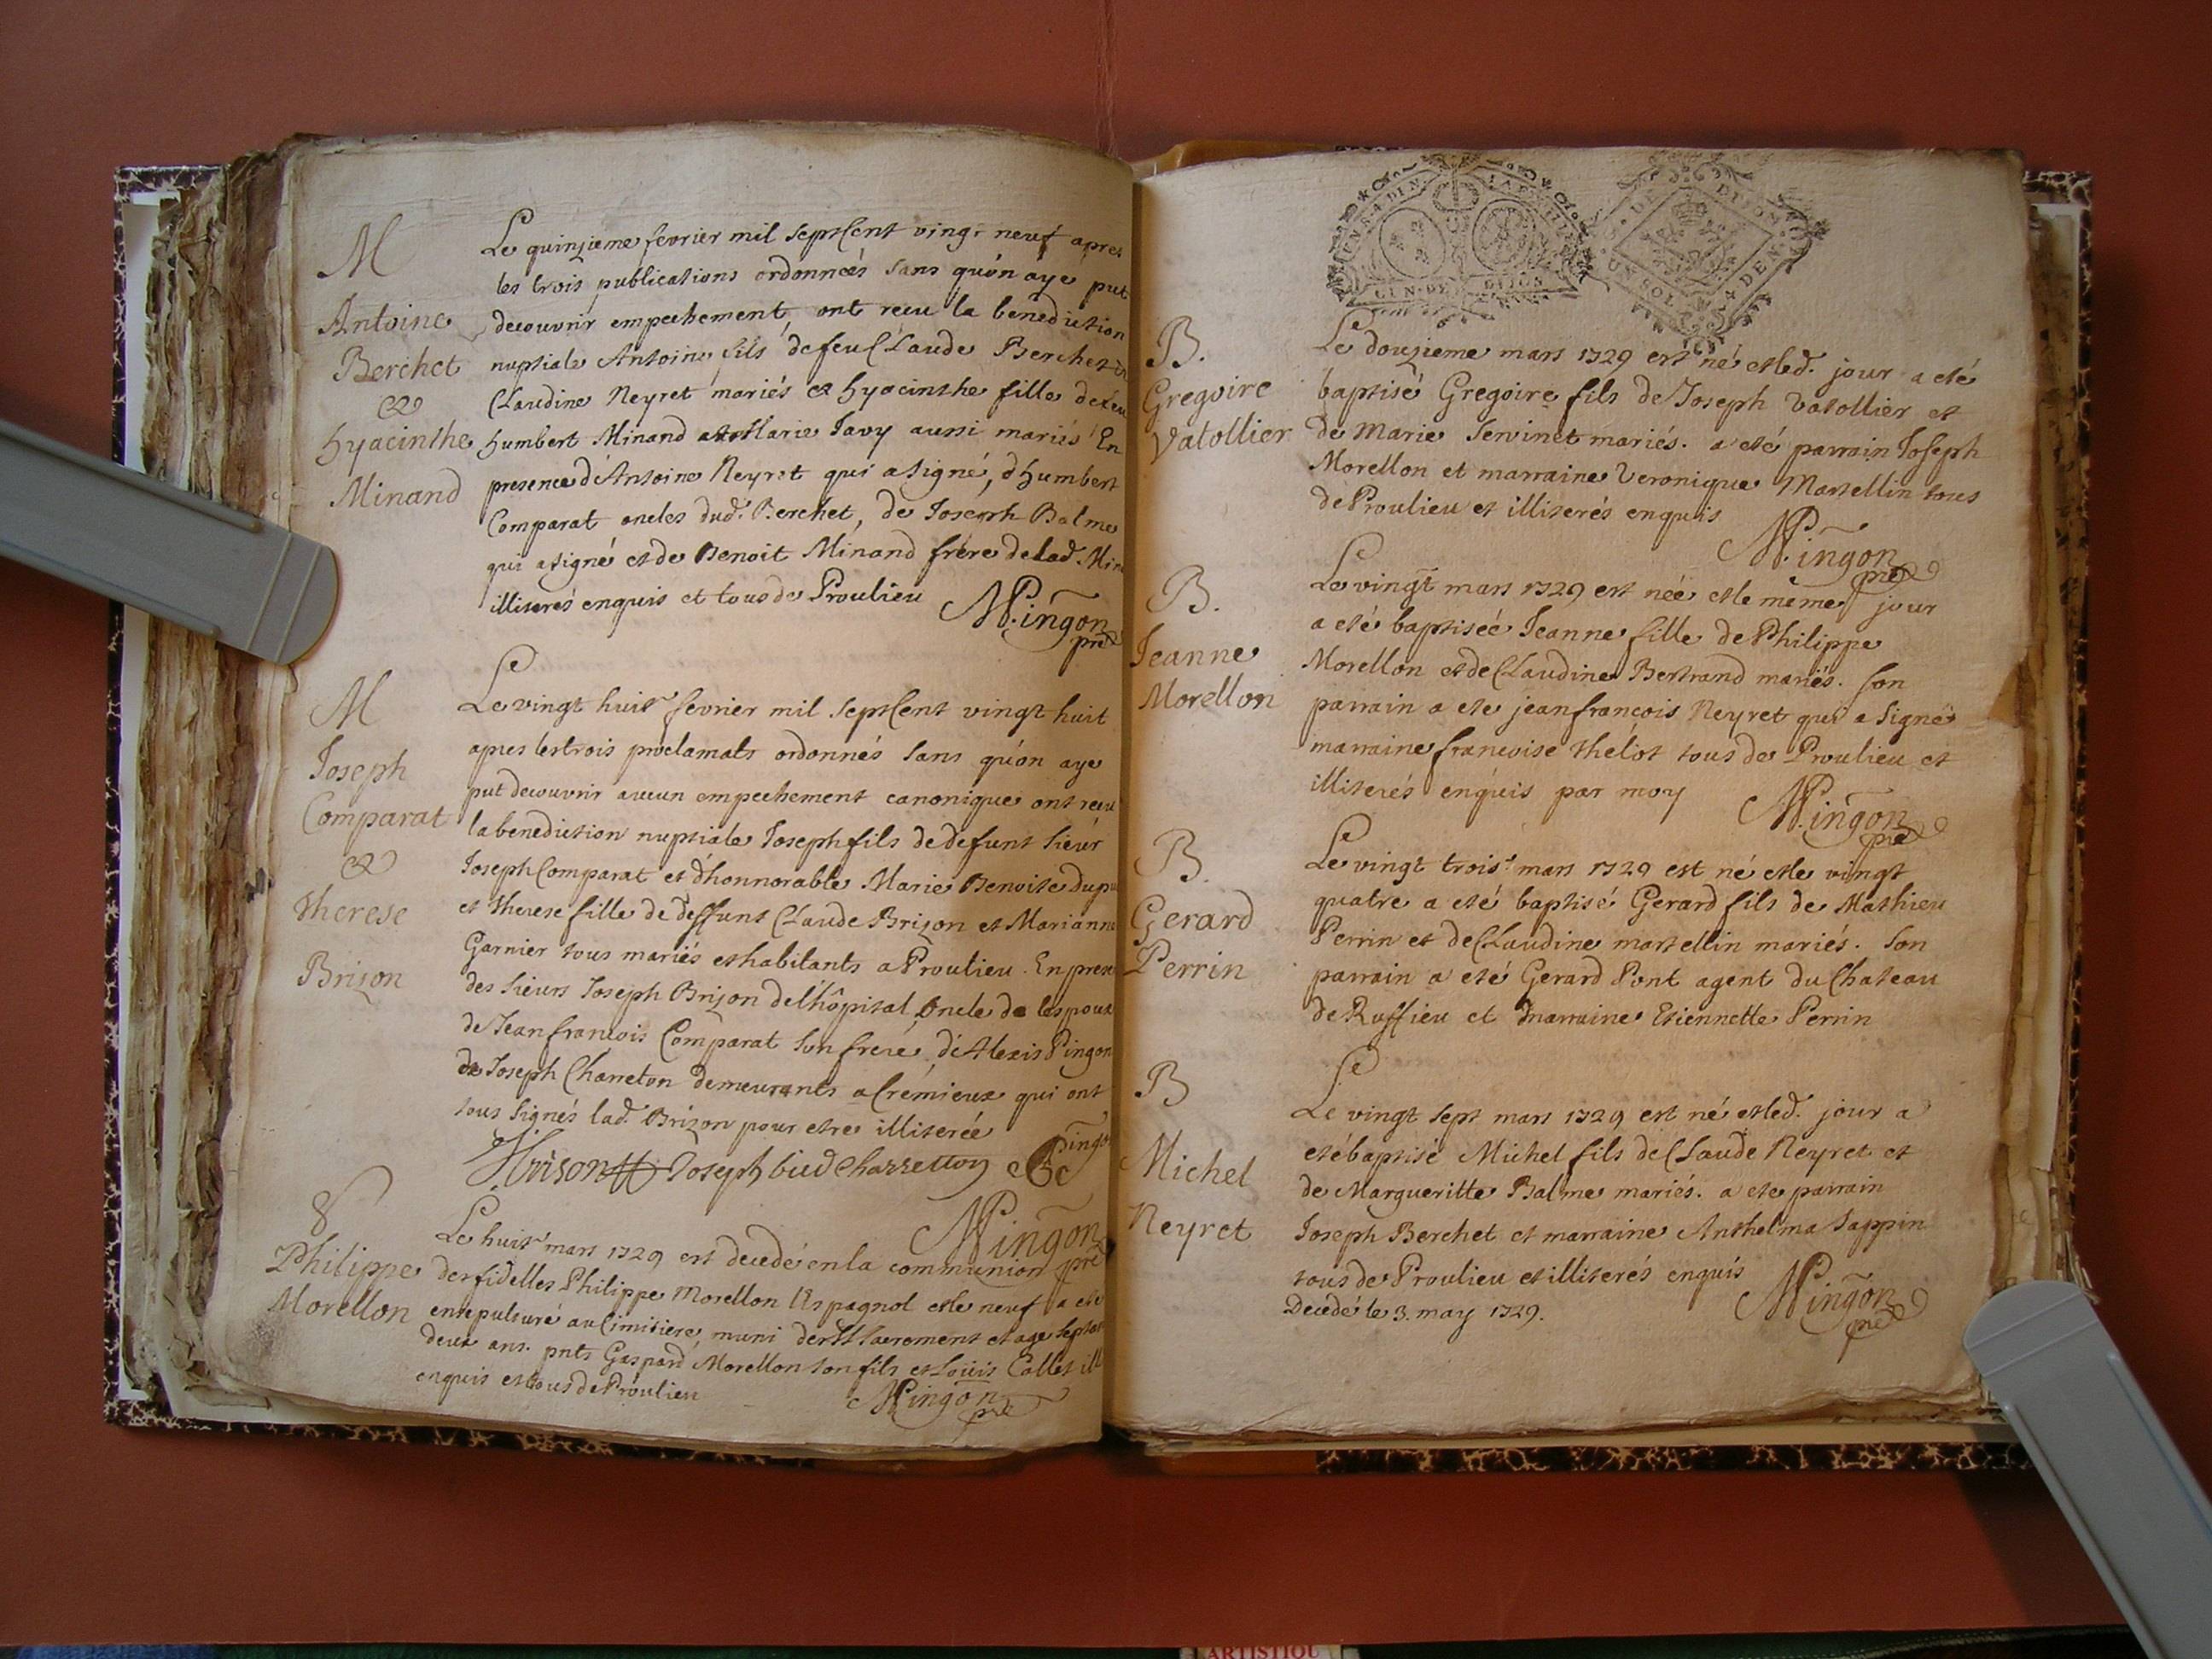 M
Antoine
Berchet
&
hyacinthe
Minand
Le quinzieme fevrier mil sept Cent vingt neuf apres
les trois publications ordonneés sans qu'on aye put
decouvrir empechement ont receu la benediction
nuptiale Antoine fils defeu Claude Berchet et
Claudine Neyret mariés et hyacinthe fille defeu
humbert Minand et Marie Javy aussi mariés En
presence d'Antoine Neyret qui a signé, d'humbert
Comparat oncles dud. Berchet, de Joseph Balme
qui a signé et de Benoit Minand frere de lad. Min
illiterés enquis et tous de Proulieu
M. Pingon
pre
M
Joseph
Comparat
&
therese
Brizon
Le vingt huit fevrier mil sept Cent vingt huit
apres les trois proclamats ordonnés sans qu'on aye
put decouvrir aucun empechement canonique ont receu
la benediction nuptiale Joseph fils de defunt sieur
Joseph Comparat et d'honnorable Marie Benoite dupu
et therese fille de deffunt Claude Brizon et Marianne
Garnier tous mariés et habitants a Proulieu. En prese
des sieurs Joseph Brizon de l'hôpital oncle de lespoux
de Jean francois Comparat son frere, d'Alexis Pingon
de Joseph Charreton demeurants a Crémieux qui ont
tous signés lad. Brizon pour etre illiterée
Brison Joseph Charretton Pingo
M. Pingon
pre
Philippe
Morellon
Le huit mars 1729 est decedé en la communion
des fidelles Philippe Morellon l'Espagnol et le neuf a eté
ensepulturé au Cimitiere, muni des sts sacrement et age septan
deux ans. pnts Gaspard Morellon son fils et Loüis Collet ill
enquis et tous de Proulieu
M. Pingon
pre
GEN. DE DIJON
DE DIJON
UN SOL 4 DEN
B.
Gregoire
Vatollier
Le douzieme mars 1729 est né et led. jour a eté
baptisé Gregoire fils de Joseph Vatollier et
de Marie Servinet mariés. a eté parrain Joseph
Morellon et marraine Veronique Martellin tous
de Proulieu et illiterés enquis
M. Pingon
pre
B.
Jeanne
Morellon
Le vingt mars 1729 est née et le même jour
a eté baptiseé Jeanne fille de Philippe
Morellon et de Claudine Bertrand mariés. son
parrain a ete jean francois Neyret qui a signé
marraine francoise thélot tous de Proulieu et
illiterés enquis par moy
M. Pingon
pre
B.
Gerard
Perrin
Le vingt trois mars 1729 est né et le vingt
quatre a eté baptisé Gerard fils de Mathieu
Perrin et de Claudine martellin mariés. Son
parrain a eté Gerard Pont agent du Chateau
de Ruffieu et marraine Etiennette Perrin
B
Michel
Neyret
Le vingt sept mars 1729 est né et led. jour a
eté baptisé Michel fils de Claude Neyret et
de Margueritte Balme mariés. a ete parrain
Joseph Berchet et marraine Anthelma Sappin
tous de Proulieu et illiterés enquis
Decedé le 3. may 1729.
M. Pingon
pre
ARTISTIQU